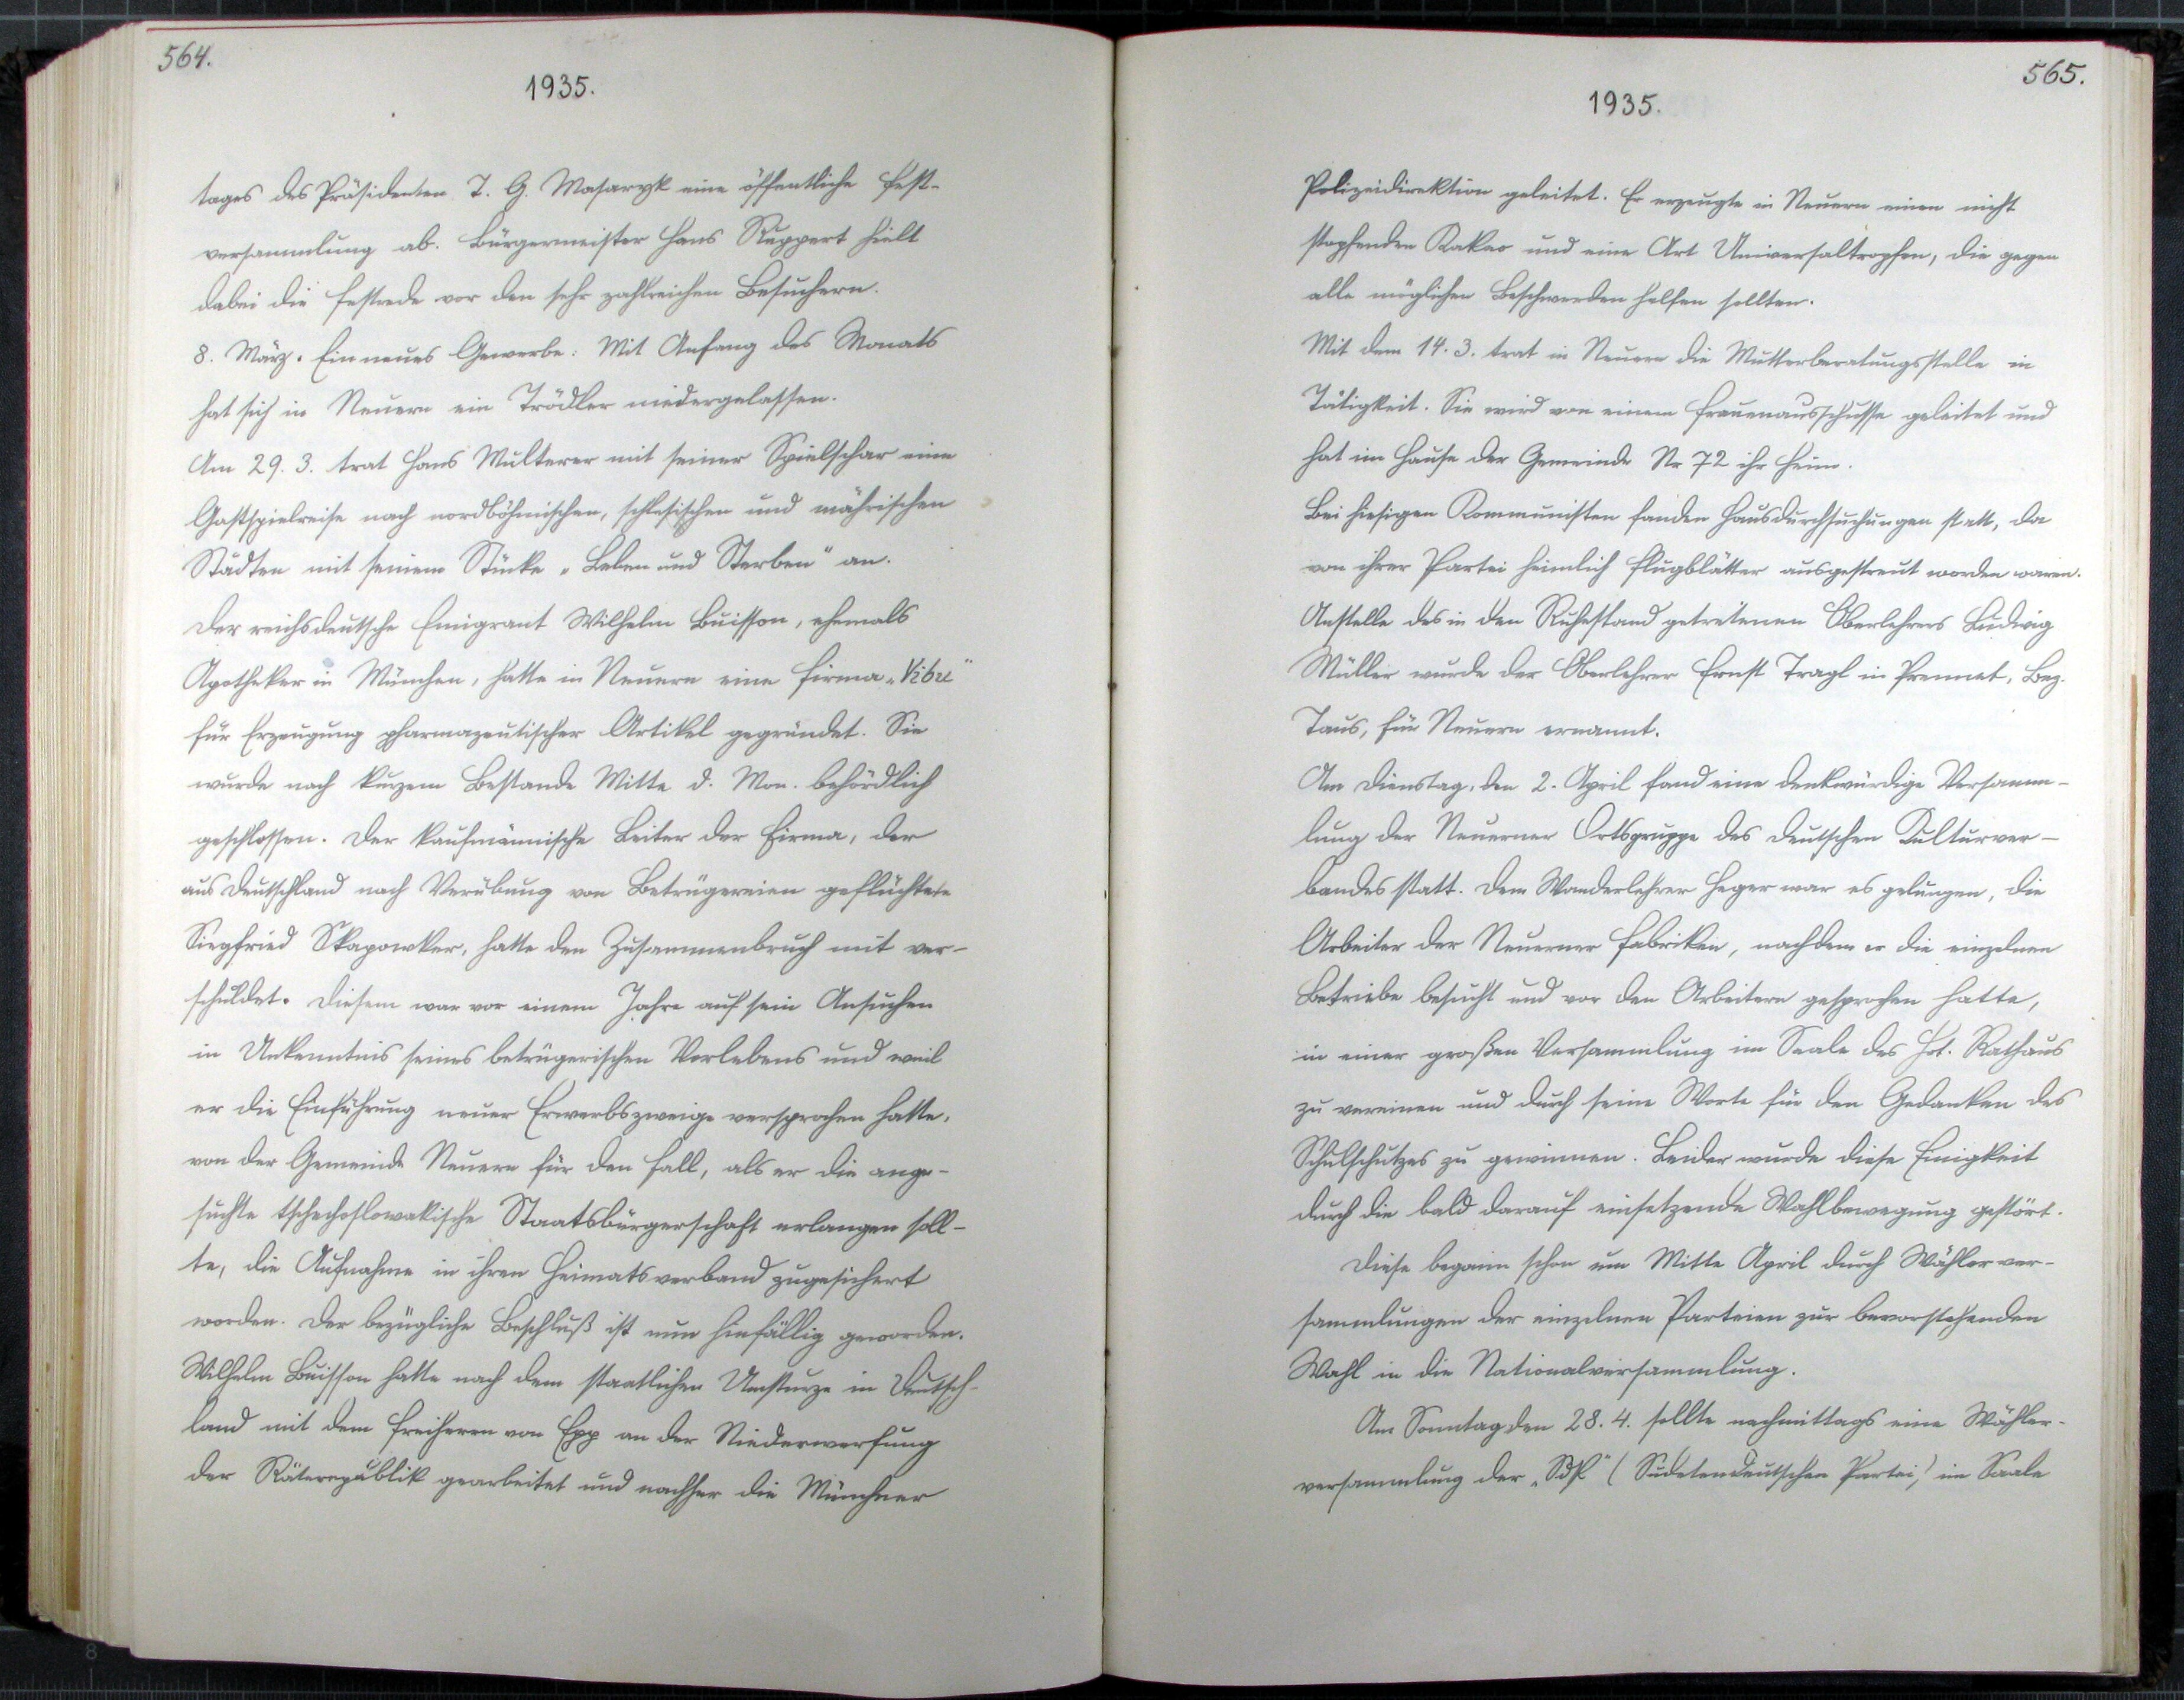 564.
1935.
tages des Präsidenten T. G. Masaryk eine öffentliche Fest-
versammlung ab. Bürgermeister Hans Ruppert hielt
dabei die Festrede vor den sehr zahlreichen Besuchern.
8. März. Ein neues Gewerbe: Mit Anfang des Monats
hat sich in Neuern ein Trödler niedergelassen.
Am 29. 3. trat Hans Multerer mit seiner Spielschar eine
Gastspielreise nach nordböhmischen, schlesischen und mährischen
Städten mit seinem Stücke „Leben und Sterben" an.
Der reichsdeutsche Emigrant Wilhelm Buisson, ehemals
Apotheker in München, hatte in Neuern eine Firma „Vibu"
für Erzeugung pharmazeutischer Artikel gegründet. Sie
wurde nach kurzem Bestande Mitte d. Mon. behördlich
geschlossen. Der kaufmännische Leiter der Firma, der
aus Deutschland nach Verübung von Betrügereien geflüchtete
Siegfried Skapowker, hatte den Zusammenbruch mit ver-
schuldet. Diesem war vor einem Jahre auf sein Ansuchen
in Unkenntnis seines betrügerischen Vorlebens und weil
er die Einführung neuer Erwerbszweige versprochen hatte,
von der Gemeinde Neuern für den Fall, als er die ange-
suchte tschechoslowakische Staatsbürgerschaft erlangen soll-
te, die Aufnahme in ihren Heimatsverband zugesichert
worden. Der bezügliche Beschluß ist nun hinfällig geworden.
Wilhelm Buisson hatte nach dem staatlichen Umsturze in Deutsch-
land mit dem Freiherrn von Epp an der Niederwerfung
der Räterepublik gearbeitet und nachher die Münchner
565.
1935.
Polizeidirektion geleitet. Er erzeugte in Neuern einen nicht
stopfenden Kakao und eine Art Universaltropfen, die gegen
alle möglichen Beschwerden helfen sollten.
Mit dem 14. 3. trat in Neuern die Mutterberatungsstelle in
Tätigkeit. Sie wird von einem Frauenausschusse geleitet und
hat im Hause der Gemeinde Nr 72 ihr Heim.
Bei hiesigen Kommunisten fanden Hausdurchsuchungen statt, da
von ihrer Partei heimlich Flugblätter ausgestreut worden waren.
Anstelle des in den Ruhestand getretenen Oberlehrers Ludwig
Müller wurde der Oberlehrer Ernst Tragl in Prennet, Bez.
Taus, für Neuern ernannt.
Am Dienstag, den 2. April fand eine denkwürdige Versamm-
lung der Neuerner Ortsgruppe des Deutschen Kulturver-
bandes statt. Dem Wanderlehrer Heger war es gelungen, die
Arbeiter der Neuerner Fabriken, nachdem er die einzelnen
Betriebe besucht und vor den Arbeitern gesprochen hatte,
in einer großen Versammlung im Saale des Hot. Rathaus
zu vereinen und durch seine Worte für den Gedanken des
Schulschutzes zu gewinnen. Leider wurde diese Einigkeit
durch die bald darauf einsetzende Wahlbewegung gestört.
Diese begann schon um Mitte April durch Wählerver-
sammlungen der einzelnen Parteien zur bevorstehenden
Wahl in die Nationalversammlung.
Am Sonntag den 28. 4. sollte nachmittags eine Wähler-
versammlung der „SdP" (Sudetendeutschen Partei) im Saale
8